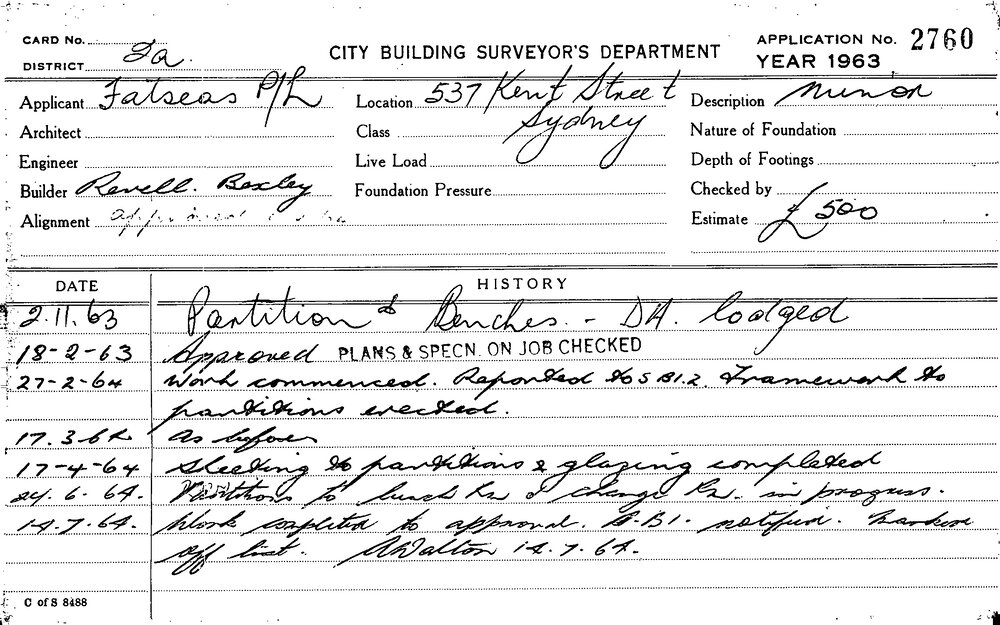 CARD No.
DISTRICT 2a.
CITY BUILDING SURVEYOR'S DEPARTMENT
APPLICATION No. 2760
YEAR 1963
Applicant Fatseas P/L
Location 537 Kent Street
Sydney
Description Minor
Architect
Class
Nature of Foundation
Engineer
Live Load
Depth of Footings
Builder Revell. Bexley
Foundation Pressure
Checked by
Alignment
Estimate £500
DATE HISTORY
2.11.63 Partition & Benches. - DA. lodged
18-2-63 Approved PLANS & SPECN. ON JOB CHECKED
27-2-64 Work commenced. Reported to S B1.2. Framework to
partitions erected.
17.3.64 As before
17-4-64 Sheeting to partitions & glazing completed
24.6.64. Partitions to lunch Rm & change Rm. in progress.
14.7.64. Work completed to approval. notified. Marked
off list. AWalton 14.7.64.
C of S 8488